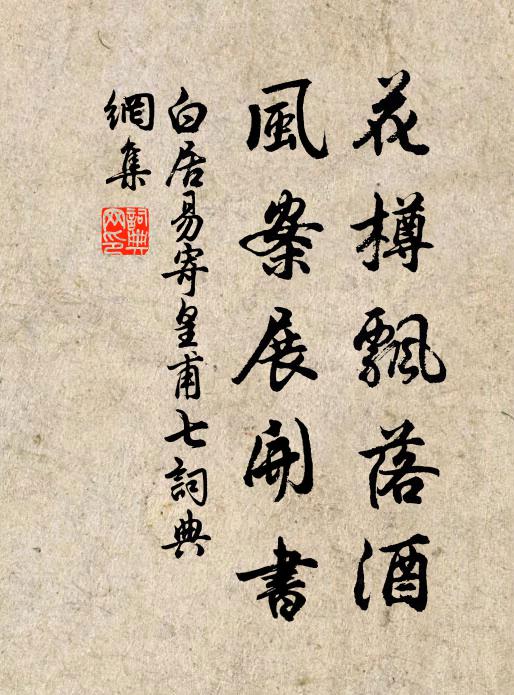 花樽飄落酒
風案展開書
白居易寄皇甫七詞典
網集
詞典
网印